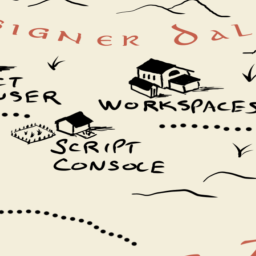 SIGNER DAL
WORKSPACES
SCRIPT
CONSOLE